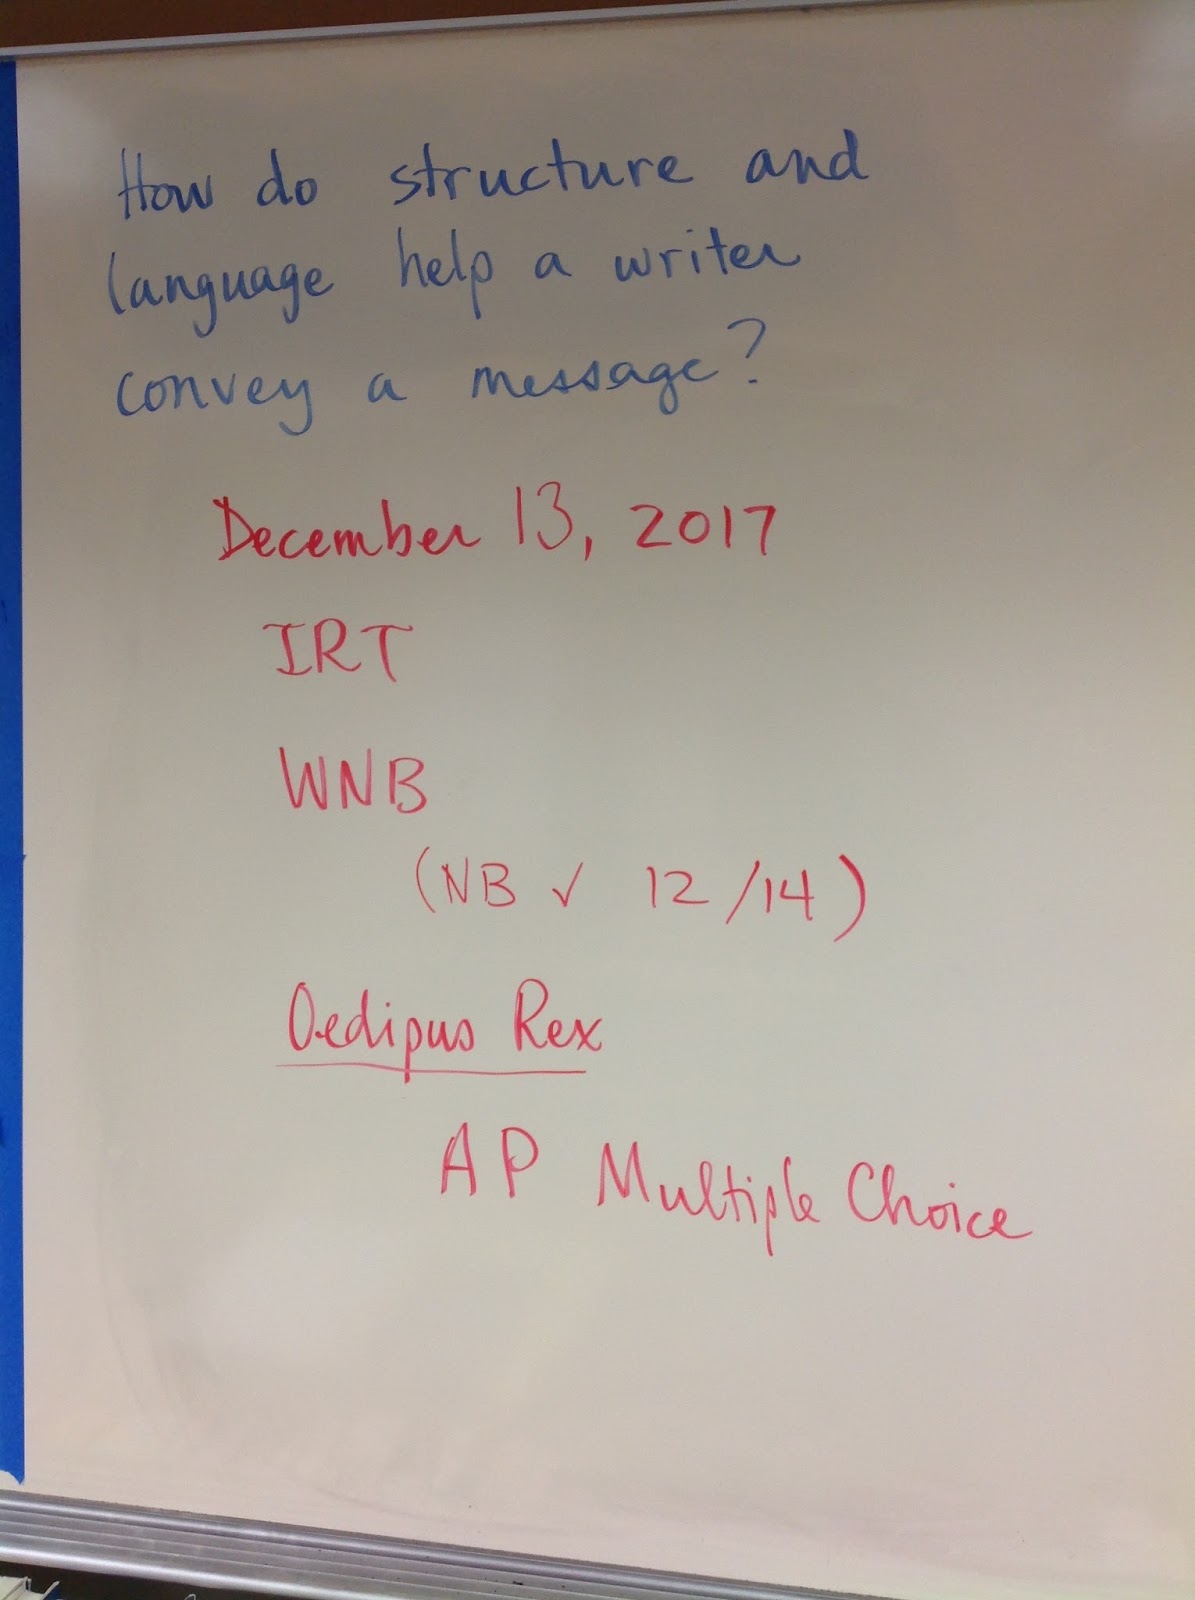 How do structure and
language help a writer
convey a message?
December 13, 2017
IRT
WNB
(NB ✓ 12/14)
Oedipus Rex
AP Multiple Choice